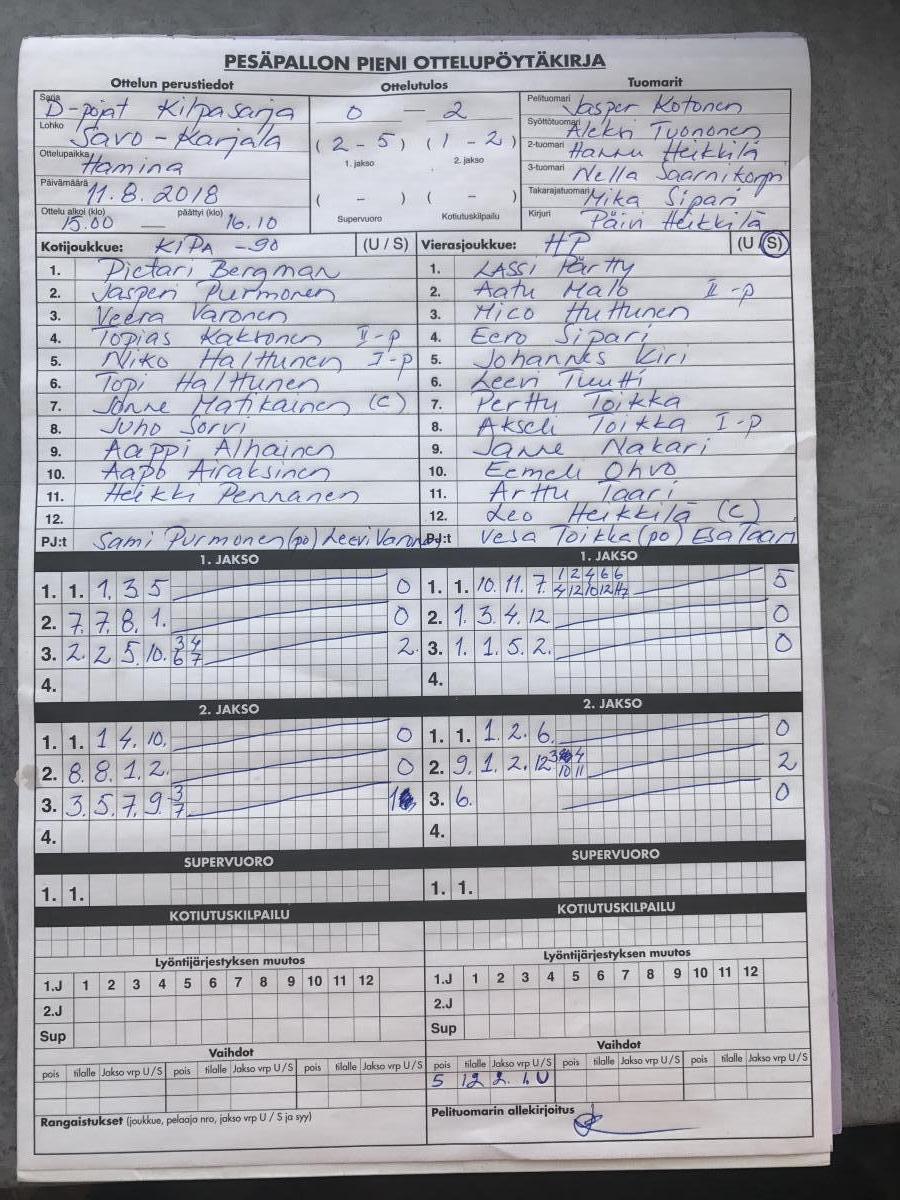 PESÄPALLON PIENI OTTELUPÖYTÄKIRJA
Ottelun perustiedot
Sarja D-pojat Kilpasarja
Lohko Savo-Karjala
Ottelupaikka Hamina
Päivämäärä 11.8.2018
Ottelu alkoi (klo) päättyi (klo)
15.00 — 16.10
Ottelutulos
0 — 2
(2 - 5) (1 - 2)
1. jakso 2. jakso
( - ) ( - )
Supervuoro Kotiutuskilpailu
Tuomarit
Pelituomari Jasper Kotonen
Syöttötuomari Aleksi Tuononen
2-tuomari Hannu Heikkilä
3-tuomari Nella Saarnikorpi
Takarajatuomari Mika Sipari
Kirjuri Päivi Heikkilä
Kotijoukkue: KiPa -90 (U / S)
1. Pietari Bergman
2. Jasperi Purmonen
3. Veera Varonen
4. Topias Kakkonen II-p
5. Niko Halttunen I-p
6. Topi Halttunen
7. Jonne Matikainen (C)
8. Juho Sorvi
9. Aappi Alhainen
10. Aapo Airaksinen
11. Heikki Pennanen
12.
PJ:t Sami Purmonen (po) Leevi Varonen
Vierasjoukkue: HP (U / S)
1. Lassi Pärtty
2. Aatu Malo II-p
3. Mico Huttunen
4. Eero Sipari
5. Johannes Kiri
6. Leevi Tuutti
7. Perttu Toikka
8. Akseli Toikka I-p
9. Janne Nakari
10. Eemeli Ohvo
11. Arttu Taari
12. Leo Heikkilä (C)
PJ:t Vesa Toikka (po) Esa Taari
1. JAKSO
1. 1. 1. 3 5 0
2. 7. 7. 8. 1. 0
3. 2. 2 5. 10. 3 4 2
6 7
4.
1. JAKSO
1. 1. 10. 11. 7. 1 2 4 6 6 5
4 12 10 12
2. 1. 3. 4. 12 0
3. 1. 1. 5. 2. 0
4.
2. JAKSO
1. 1. 1 4. 10. 0
2. 8. 8. 1. 2. 0
3. 3. 5. 7. 9. 3 1
7
4.
2. JAKSO
1. 1. 1. 2. 6. 0
2. 9. 1. 2. 12 3 4 2
10 11
3. 6. 0
4.
SUPERVUORO
1. 1.
SUPERVUORO
1. 1.
KOTIUTUSKILPAILU
KOTIUTUSKILPAILU
Lyöntijärjestyksen muutos
1.J 1 2 3 4 5 6 7 8 9 10 11 12
2.J
Sup
Lyöntijärjestyksen muutos
1.J 1 2 3 4 5 6 7 8 9 10 11 12
2.J
Sup
Vaihdot
pois tilalle Jakso vrp U / S pois tilalle Jakso vrp U / S pois tilalle Jakso vrp U / S
Vaihdot
pois tilalle Jakso vrp U / S pois tilalle Jakso vrp U / S pois tilalle Jakso vrp U / S
5 12 2. 1. U
Rangaistukset (joukkue, pelaaja nro, jakso vrp U / S ja syy)
Pelituomarin allekirjoitus